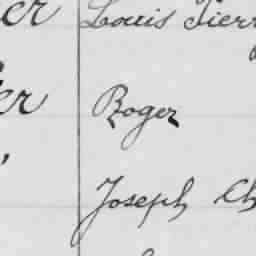 er Louis Pierr
er Roger
Joseph Ch